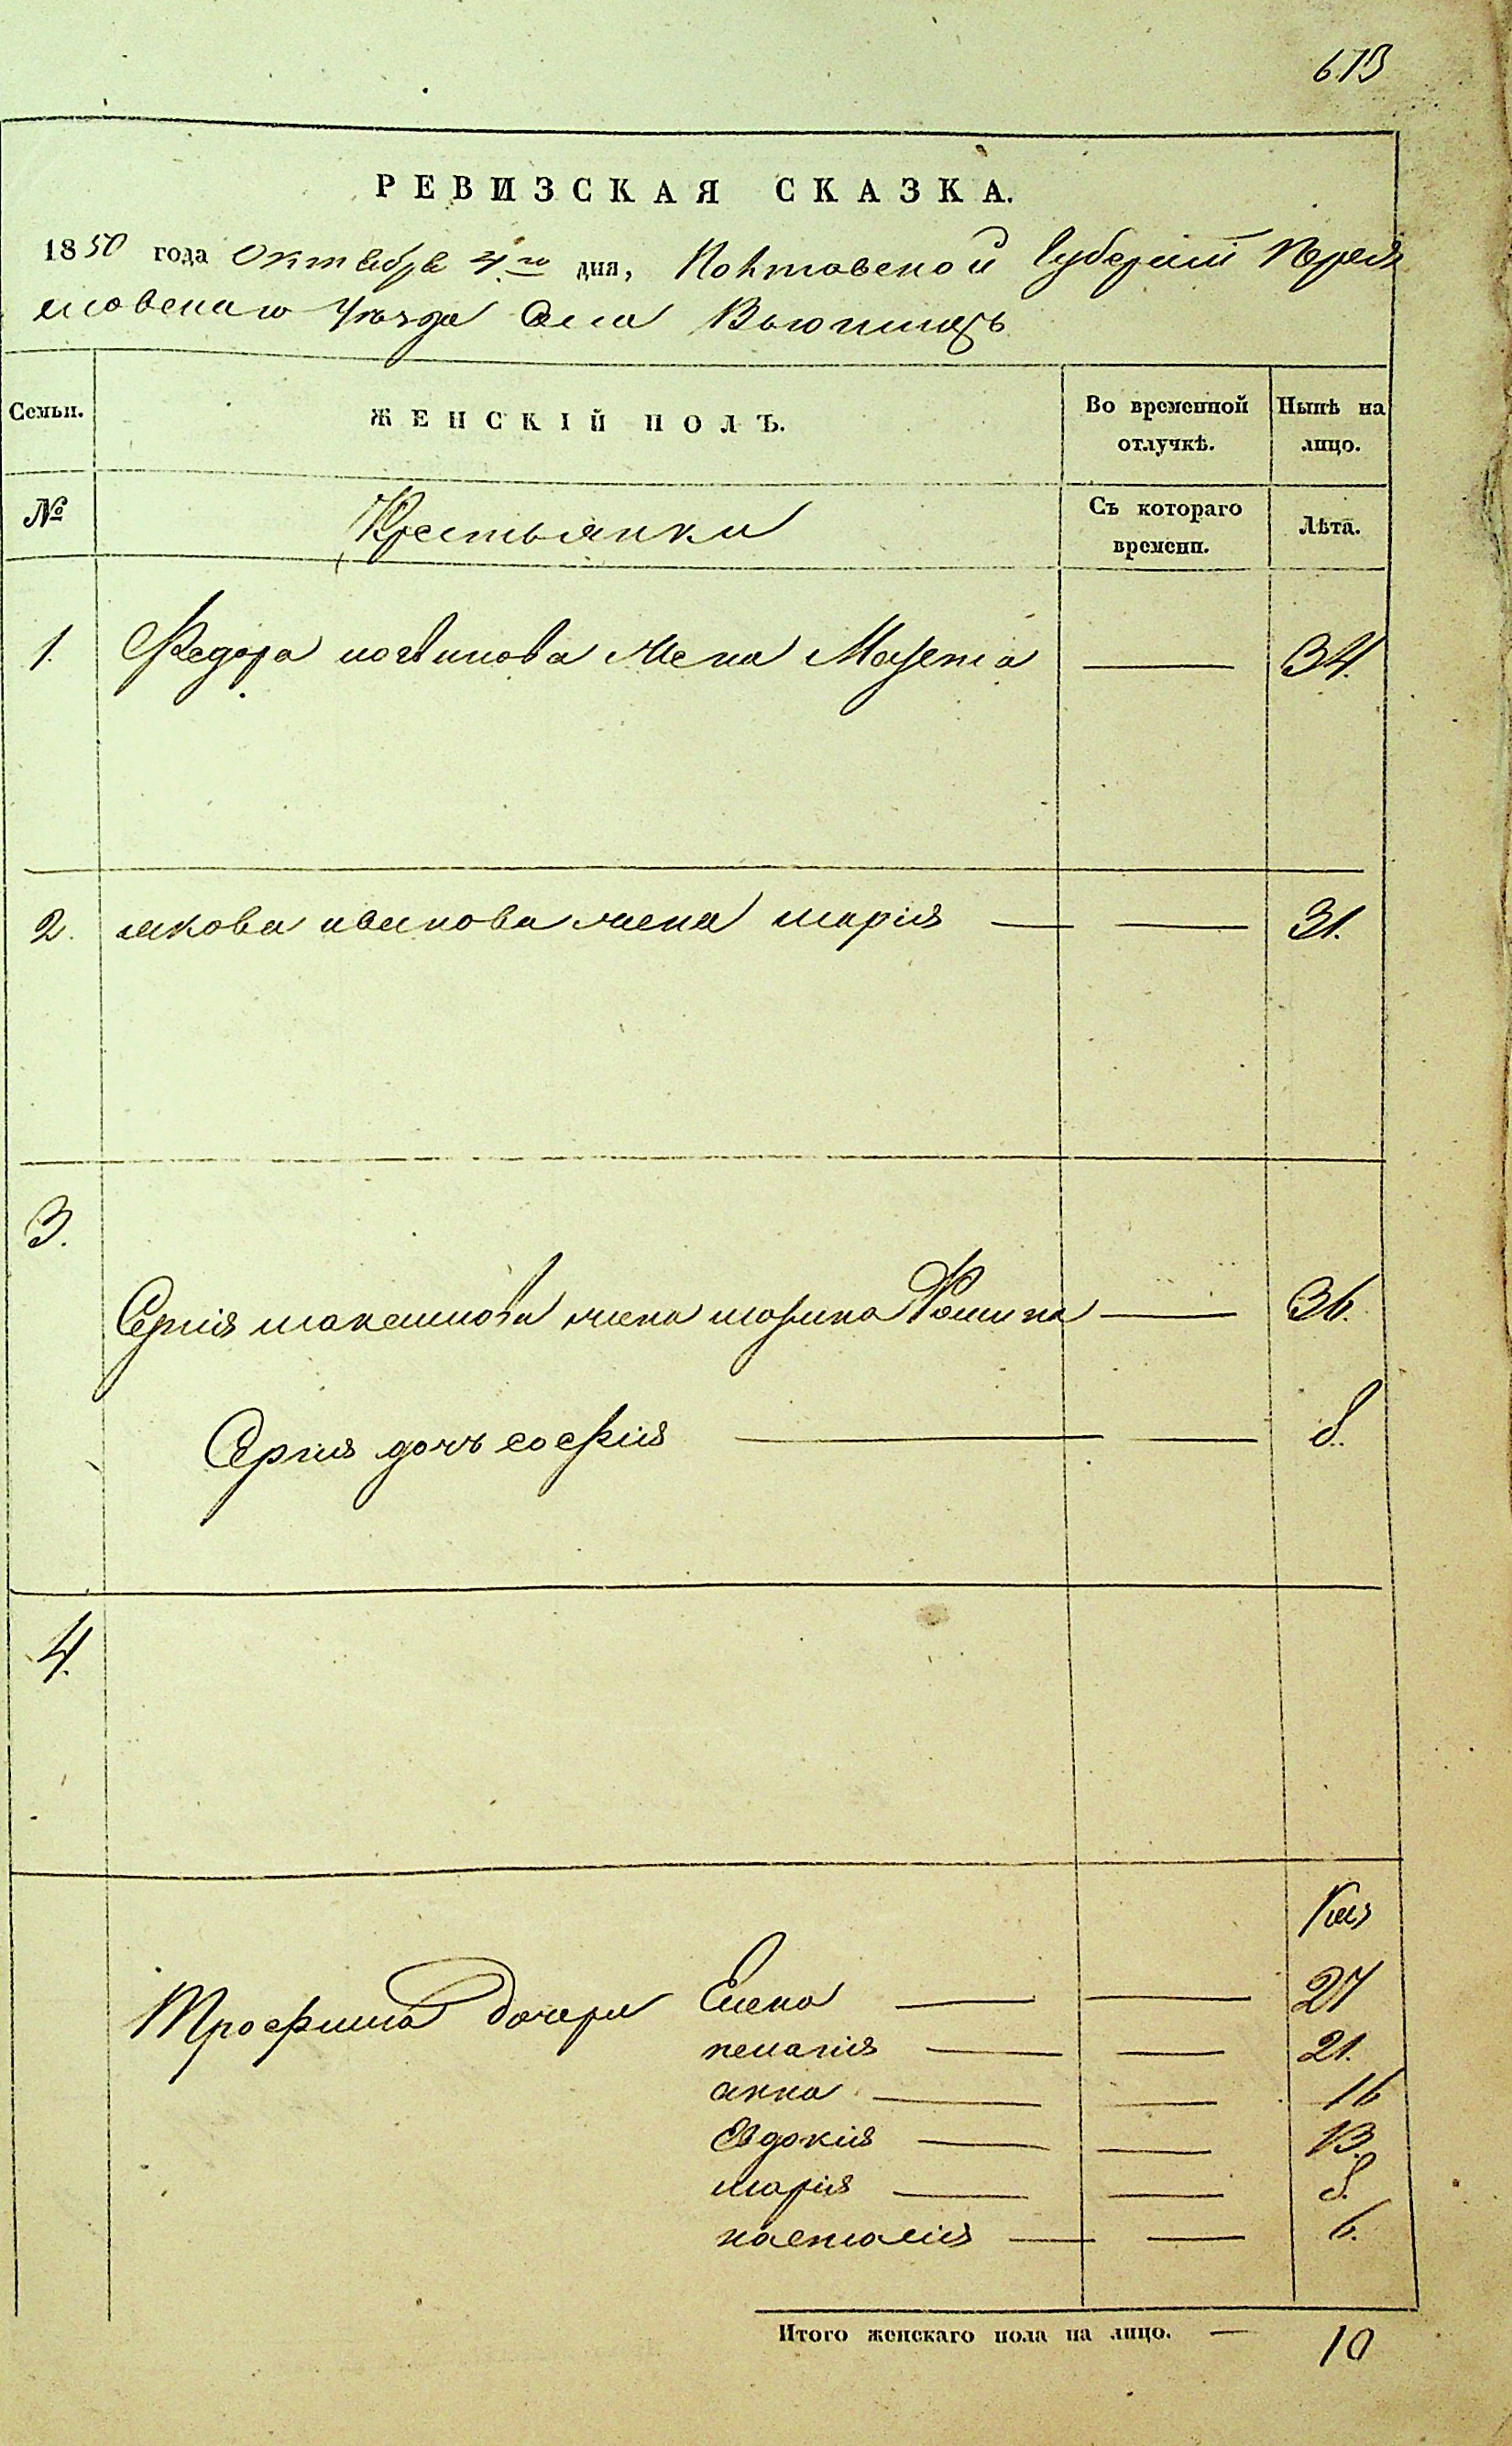 613
РЕВИЗСКАЯ СКАЗКА.
1850 года Октября 4го дня, Полтавской Губерніи Перея
славскаго Уезда Села Вьюнищь
Семьи. ЖЕНСКІЙ ПОЛЪ. Во временной отлучкѣ. Нынѣ на лицо.
№ Крестьянки Съ котораго времени. Лѣта.
1. Федора жена 34.
2. якова иванова жена марія — — 31.
3.
Сергія максимова жена марина Фомина — 36.
Сергія дочь софія — — 8.
4.
Трофима дочери Елена — — 27
пелагия — — 21.
анна — — 16
Евдокия — — 13.
марія — — 8.
наталія — — 6.
Итого женскаго пола на лицо. — 10